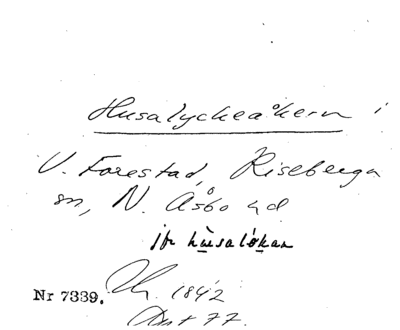 Husalyckeåkern i
V. Forestad, Riseberga
sn, N. Åsbo hd
jfr husalökan
Nr 7339. 1842
Akt 77.